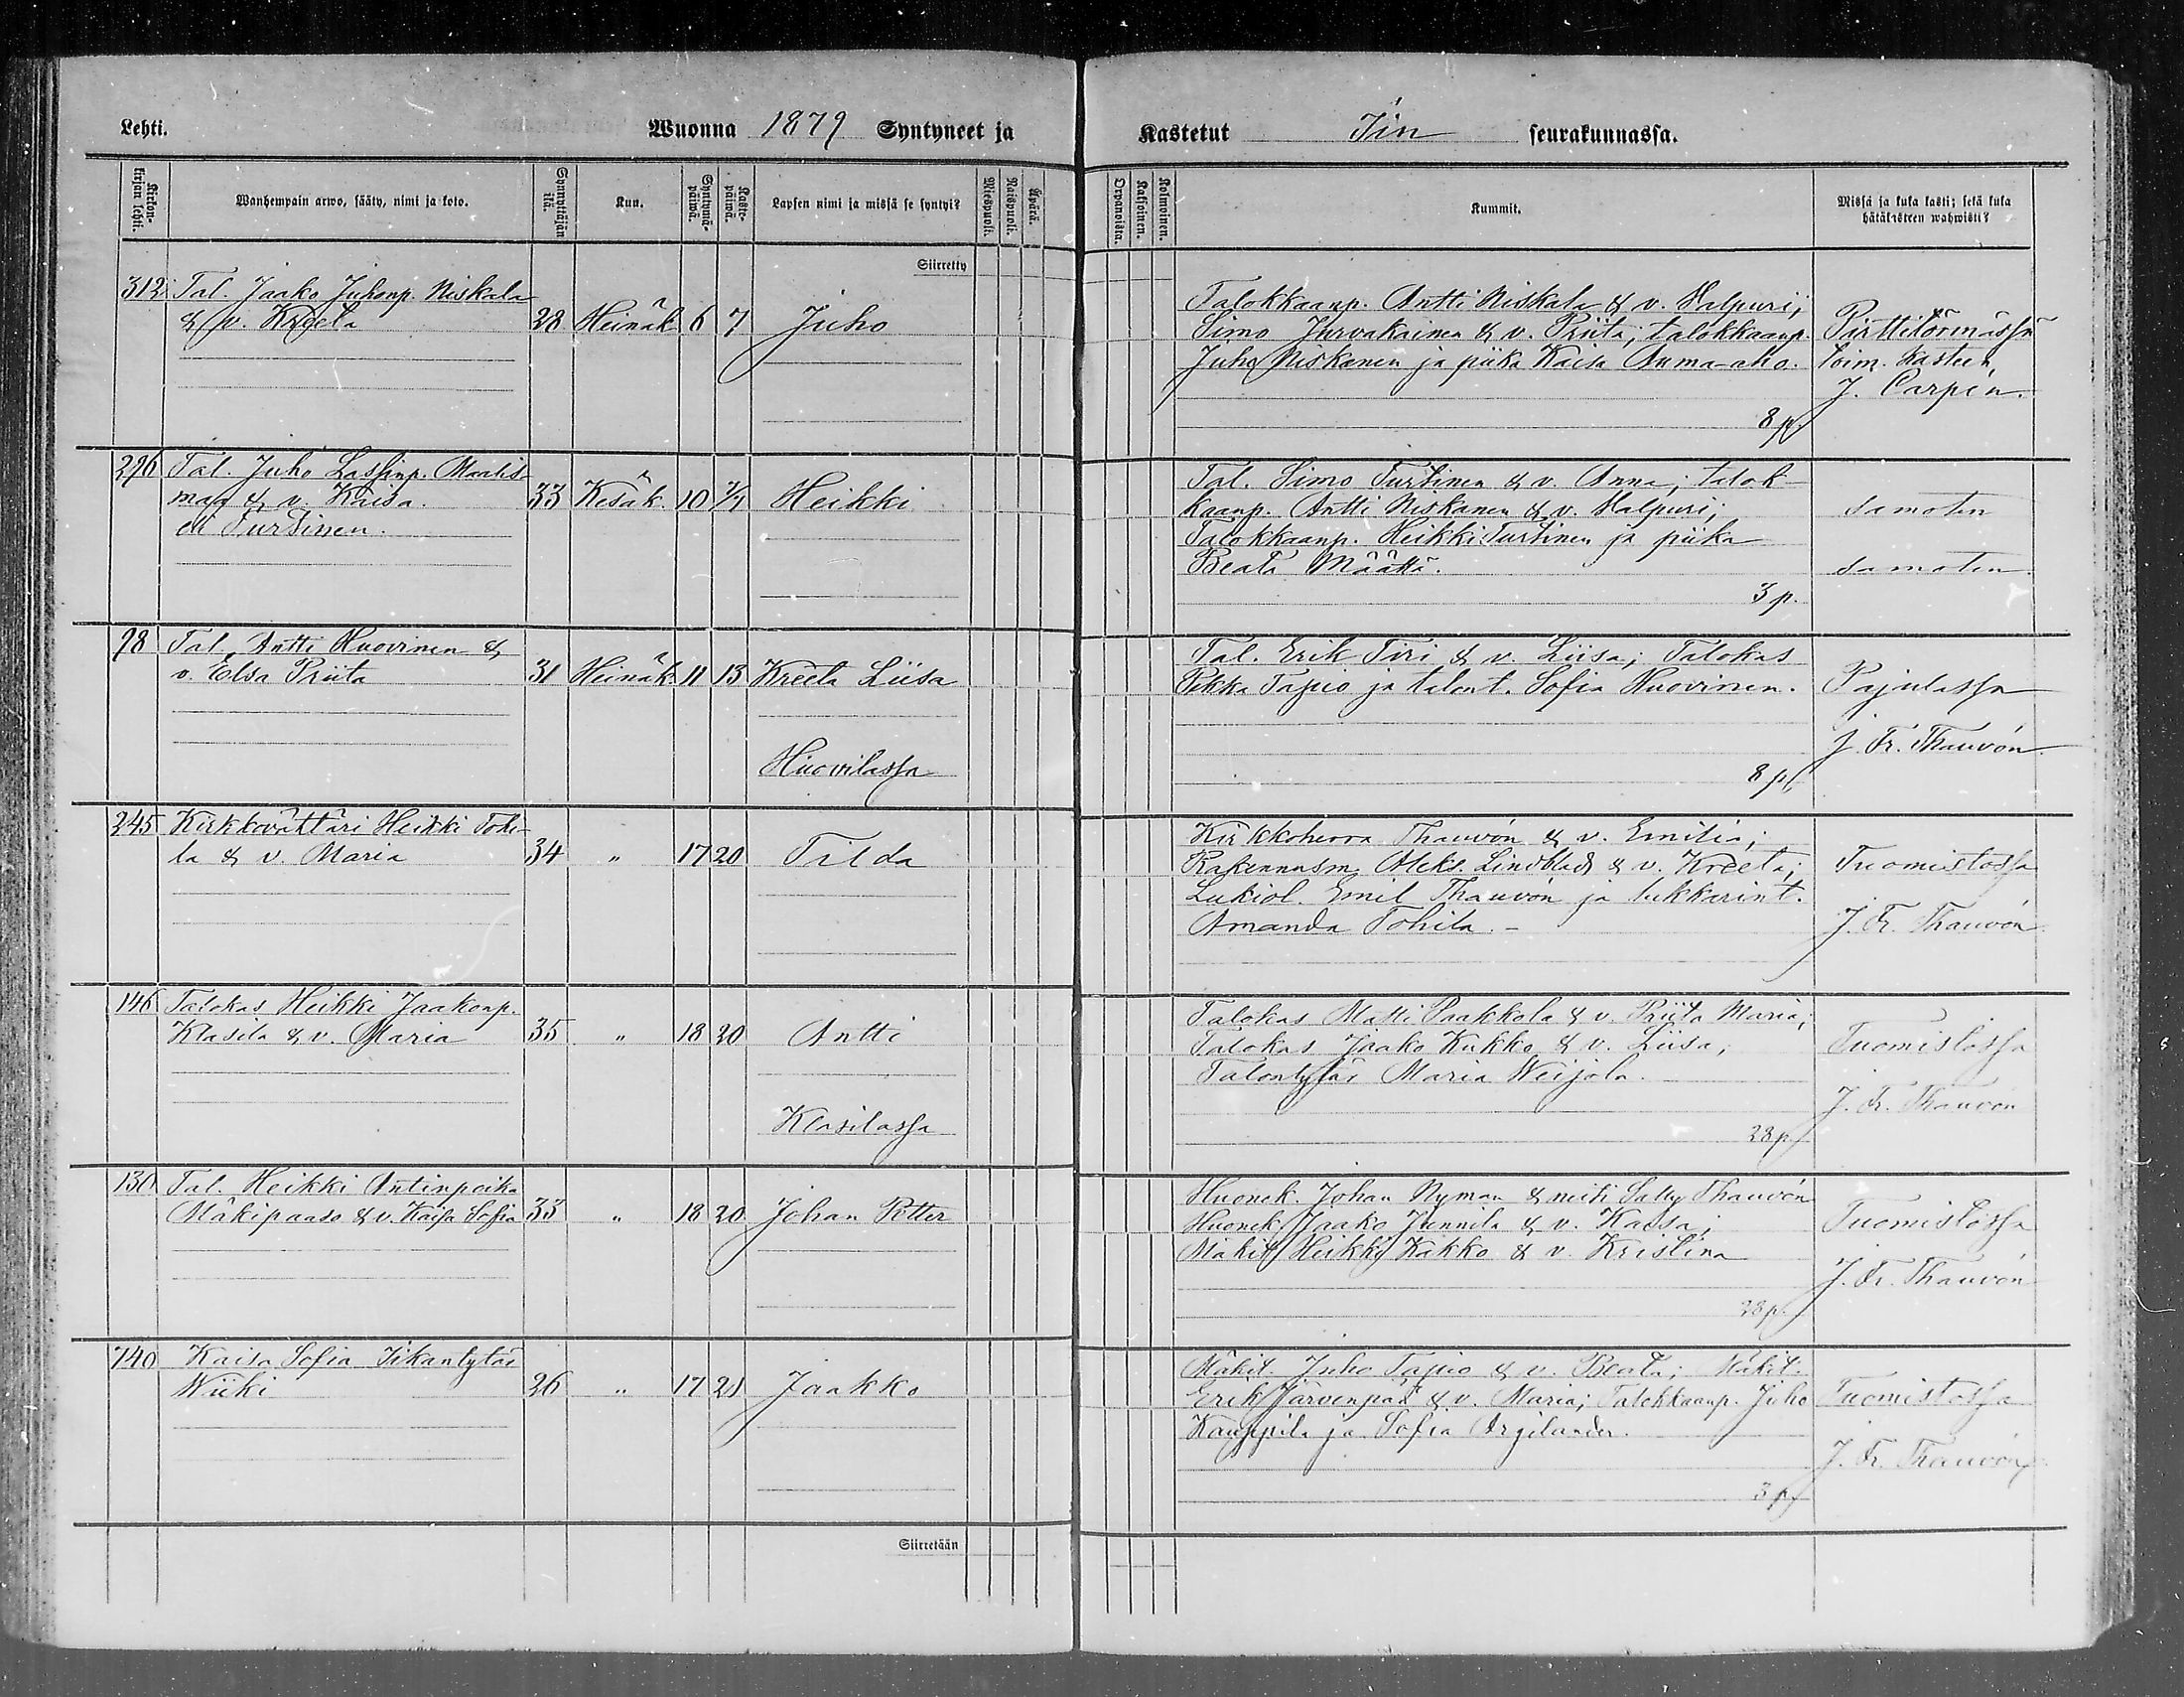 Lehti.
Wuonna 1879 Syntyneet ja
Kastetut Iin seurakunnassa.
Kirkon-kirjan lehti.
Wanhempain arwo, sääty, nimi ja koto.
Synnyttäjän ikä.
Kuu.
Syntymä-päiwä.
Kaste-päiwä.
Lapsen nimi ja missä se syntyi?
Miespuoli.
Naispuoli.
Äpärä.
Orpanoista.
Kaksoinen.
Kolmoinen.
Kummit.
Missä ja kuka kasti; sekä kuka
hätäkasteen wahwisti?
Siirretty
312 Tal. Jaako Juhonp. Niskala
& v. Kreeta 28 Heinäk. 6 7 Juho
Talokkaanp. Antti Niskala & v. Valpuri;
Simo Jurvakainen & v. Priita; talokkaanp.
Juho Niskanen ja piika Kaisa Anma-aho.
8 p.
Pirttitörmässä
toim. kasteen
J. Carpén.
296 Tal. Juho Lassinp. Maalis-
maa & v. Kaisa. 33 Kesäk. 10 7/7 Heikki
eli Turtinen.
Tal. Simo Turtinen & v. Anna; talok-
kaanp. Antti Niskanen & v. Valpuri;
Talokkaanp. Heikki Turtinen ja piika
Beata Määttä.
3 p.
Samoten
Samoten
98 Tal. Antti Huovinen &
v. Elsa Priita 31 Heinäk. 11 13 Kreeta Liisa
Huovilassa
Tal. Erik Turi & v. Liisa; Talokas
Pekka Tapio ja talont. Sofia Huovinen.
8 p.
Pajulassa
J. Fr. Thauvón
245 Kirkkovahtäri Heikki Tohi-
la & v. Maria 34 " 17 20 Tilda
Kirkkoherra Thauvón & v. Emilia;
Rakennusm. Aleks. Lindblad & v. Kreeta;
Lukiol. Emil Thauvón ja lukkarint.
Amanda Tohila. –
Tuomistossa
J. Fr. Thauvón
146 Talokas Heikki Jaakonp.
Klasila & v. Maria 35 " 18 20 Antti
Klasilassa
Talokas Matti Paakkola & v. Priita Maria;
Talokas Jaako Kukko & v. Liisa;
Talontytär Maria Weijola.
28 p.
Tuomistossa
J. Fr. Thauvon
130 Tal. Heikki Antinpoika
Mäkipaaso & v. Kaisa Sofia 33 " 18 20 Johan Petter
Huonek. Johan Nyman & neiti Sally Thauvón
Huonek. Jaako Junnila & v. Kaisa;
Mäkit. Heikki Kakko & v. Kristina
28 p.
Tuomistossa
J. Fr. Thauvón
140 Kaisa Sofia Iikantytär
Wiiki 26 " 17 21 Jaakko
Mäkit. Juho Tapio & v. Beata; Mäkit.
Erik Järvenpää & v. Maria; Talokkaanp. Juho
Kauppila ja Sofia Argilander.
3 p.
Tuomistossa
J. Fr. Thauvón
Siirretään